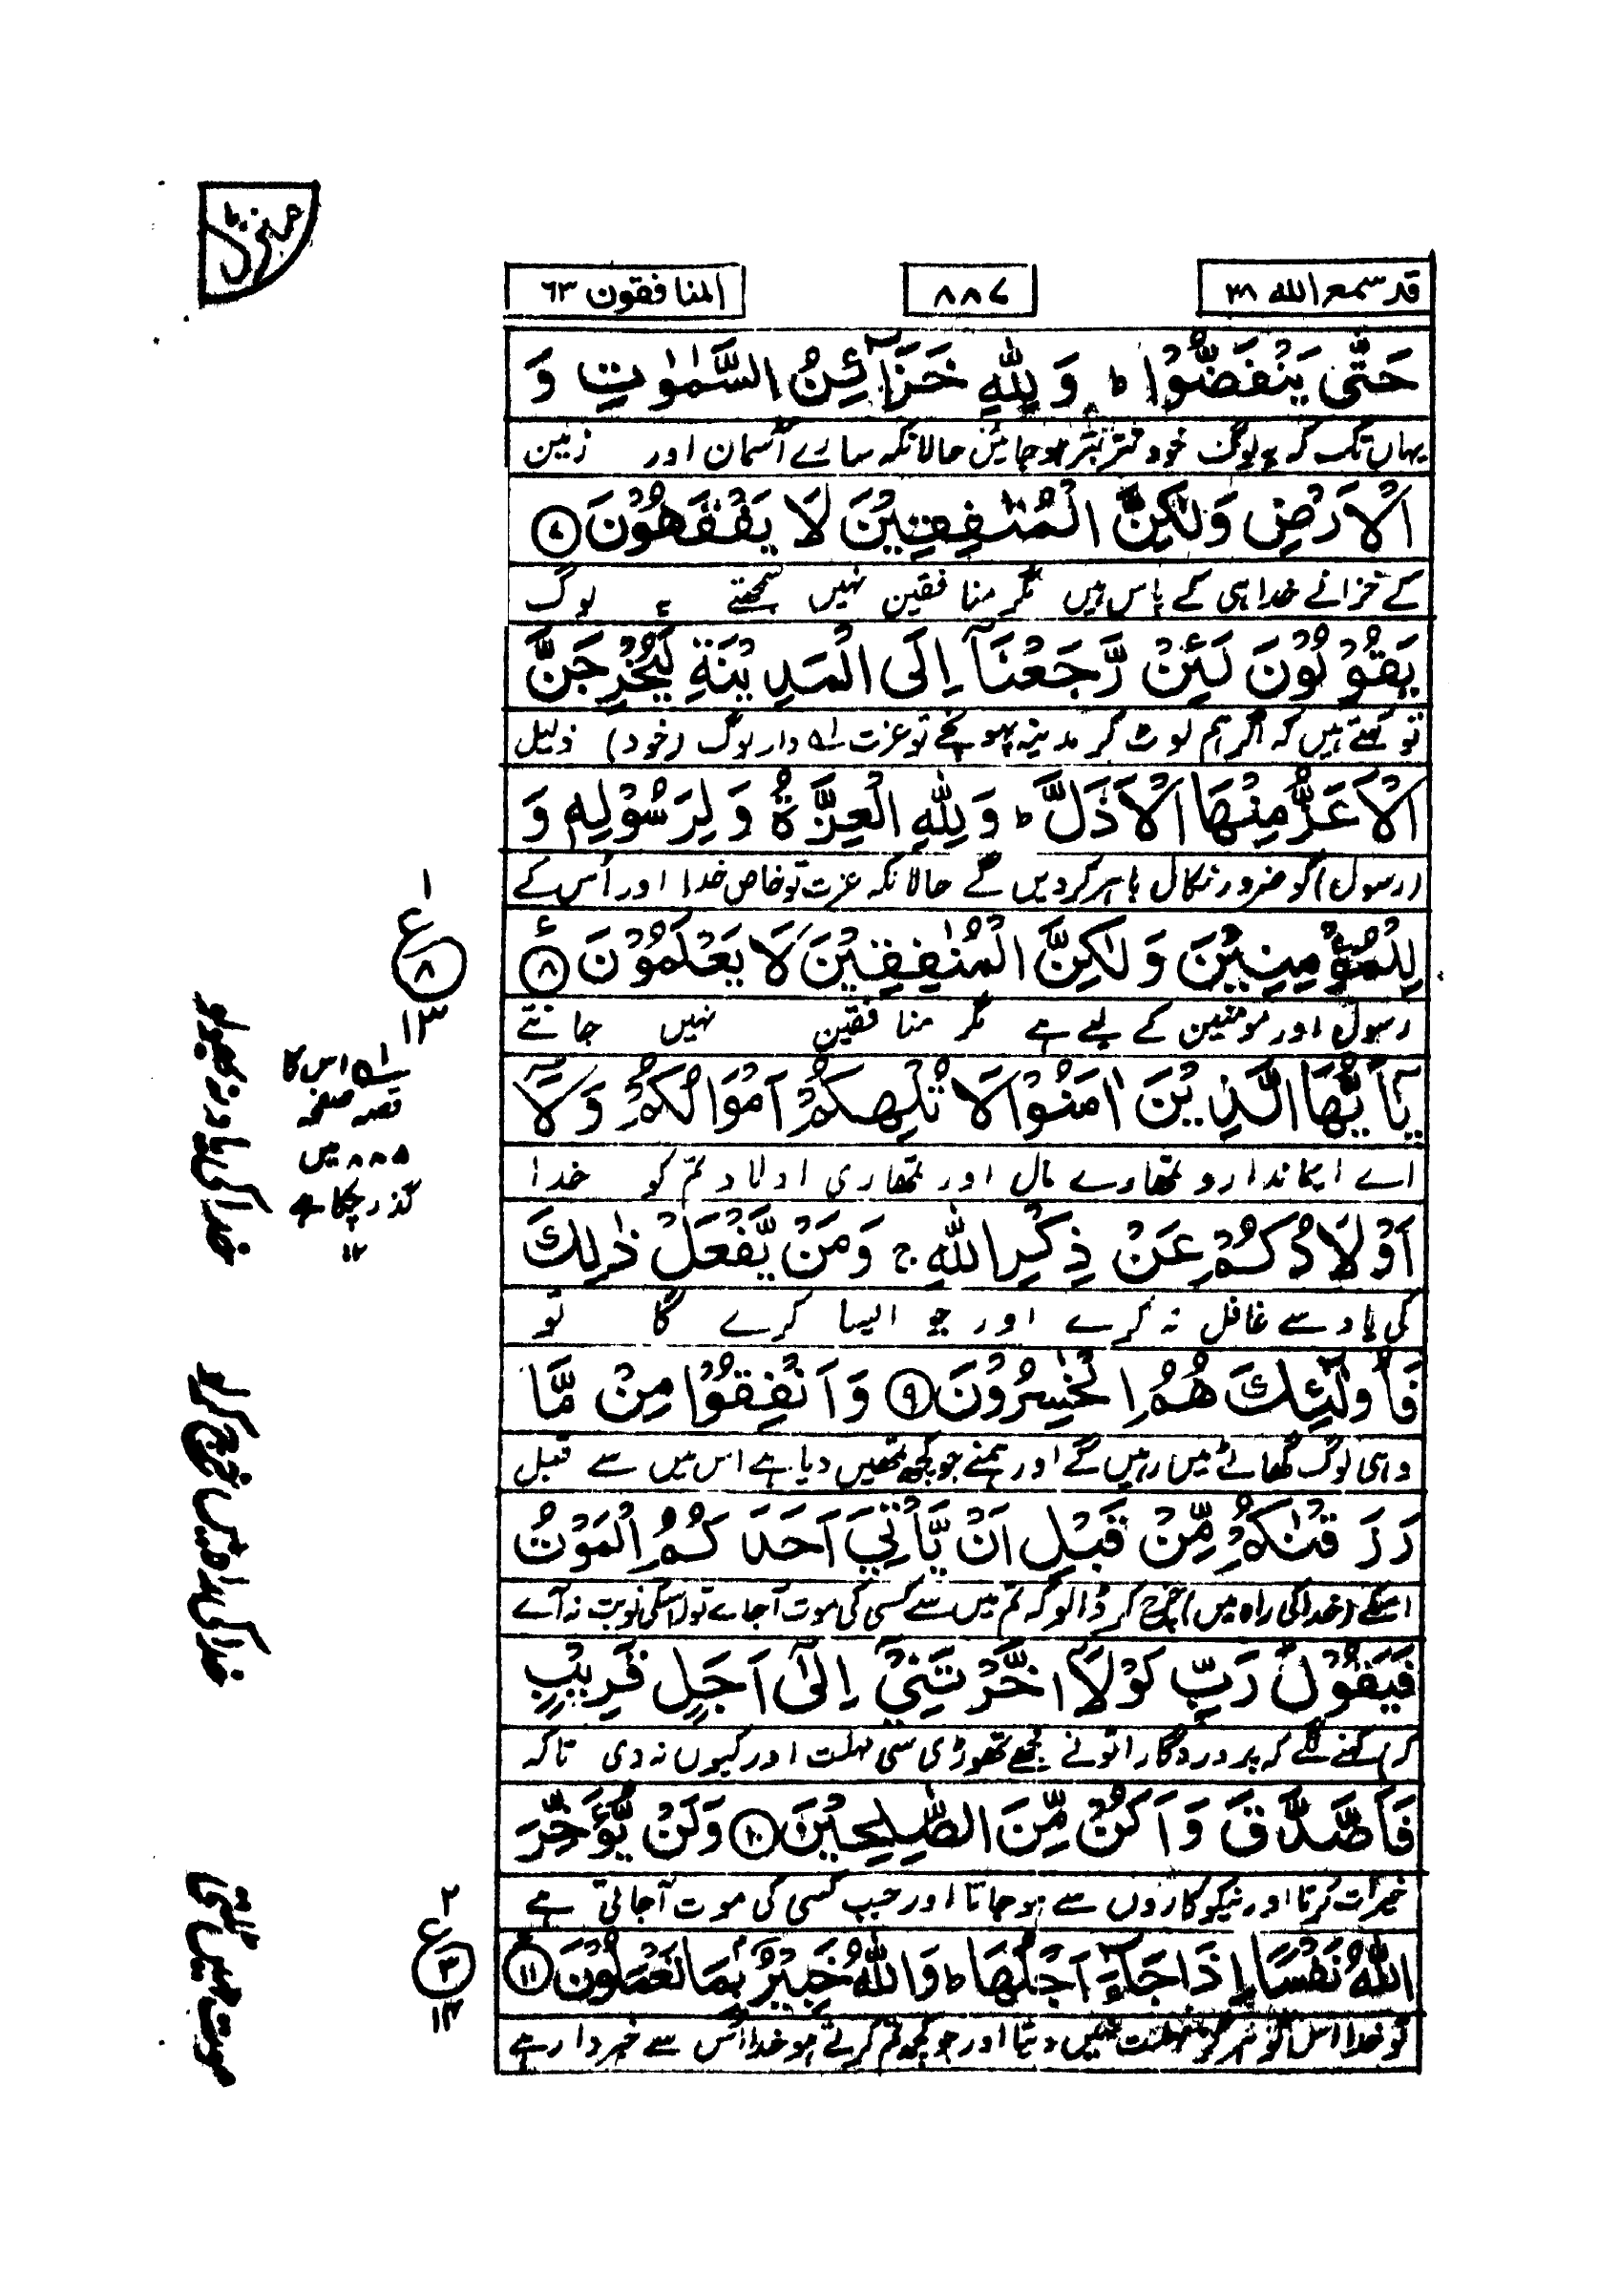 قد سمع الله ۲۸
۸۸۷
المنافقون ٦۳
حَتّٰى يَنْفَضُّوْا ؕ وَ لِلّٰهِ خَزَآئِنُ السَّمٰوٰتِ وَ
یہاں تک کہ یہ لوگ خود تتر بتر ہو جائیں حالانکہ سارے آسمان اور زمین
الْاَرْضِ وَلٰكِنَّ الْمُنٰفِقِيْنَ لَا يَفْقَهُوْنَ ۷
کے خزانے خدا ہی کے پاس ہیں مگر منافقین نہیں سمجھتے یہ لوگ
يَقُوْلُوْنَ لَئِنْ رَّجَعْنَآ اِلَى الْمَدِيْنَةِ لَيُخْرِجَنَّ
تو کہتے ہیں کہ اگر ہم لوٹ کر مدینہ پہونچے تو عزت ۱؎ دار لوگ (خود) ذلیل
الْاَعَزُّ مِنْهَا الْاَذَلَّ ؕ وَ لِلّٰهِ الْعِزَّةُ وَ لِرَسُوْلِهٖ وَ
(رسول) کو ضرور نکال باہر کردیں گے حالانکہ عزت تو خاص خدا اور اُس کے
لِلْمُؤْمِنِيْنَ وَ لٰكِنَّ الْمُنٰفِقِيْنَ لَا يَعْلَمُوْنَ ۸ ع
رسول اور مومنین کے لیے ہے مگر منافقین نہیں جانتے
يٰٓاَيُّهَا الَّذِيْنَ اٰمَنُوْا لَا تُلْهِكُمْ اَمْوَالُكُمْ وَلَآ
اے ایماندارو تمھارے مال اور تمھاری اولاد تم کو خدا
اَوْلَادُكُمْ عَنْ ذِكْرِ اللّٰهِ ۚ وَمَنْ يَّفْعَلْ ذٰلِكَ
کی یاد سے غافل نہ کرے اور جو ایسا کرے گا تو
فَاُولٰٓئِكَ هُمُ الْخٰسِرُوْنَ ۹ وَ اَنْفِقُوْا مِنْ مَّا
وہی لوگ گھاٹے میں رہیں گے اور ہمنے جو کچھ تمھیں دیا ہے اس میں سے قبل
رَزَقْنٰكُمْ مِّنْ قَبْلِ اَنْ يَّاْتِيَ اَحَدَكُمُ الْمَوْتُ
اسکے (خدا کی راہ میں) خرچ کر ڈالو کہ تم میں سے کسی کی موت آجاے تو اسکی نوبت نہ آے
فَيَقُوْلَ رَبِّ لَوْلَآ اَخَّرْتَنِيْٓ اِلٰٓى اَجَلٍ قَرِيْبٍ
کہ) کہنے لگے کہ پروردگارا تونے مجھے تھوڑی سی مہلت اور کیوں نہ دی تاکہ
فَاَصَّدَّقَ وَ اَكُنْ مِّنَ الصّٰلِحِيْنَ ۱۰ وَ لَنْ يُّؤَخِّرَ
خیرات کرتا اور نیکو کاروں سے ہو جاتا اور جب کسی کی موت آجاتی ہے
اللّٰهُ نَفْسًا اِذَا جَآءَ اَجَلُهَا ؕ وَ اللّٰهُ خَبِيْرٌۢ بِمَا تَعْمَلُوْنَ ۱۱ ع
تو خدا اسکو ہرگز مہلت نہیں دیتا اور جو کچھ تم کرتے ہو خدا اُس سے خبردار ہے
۱
ع
۸
۱۳
۱؎ اس کا
قصہ صفحہ
۸۸۵ میں
گذر چکا ہے
۱۲
خدا کی یاد نہ بھولو
خدا کی راہ میں خرچ کرو
موت میں
۲
ع
۳
۱۴